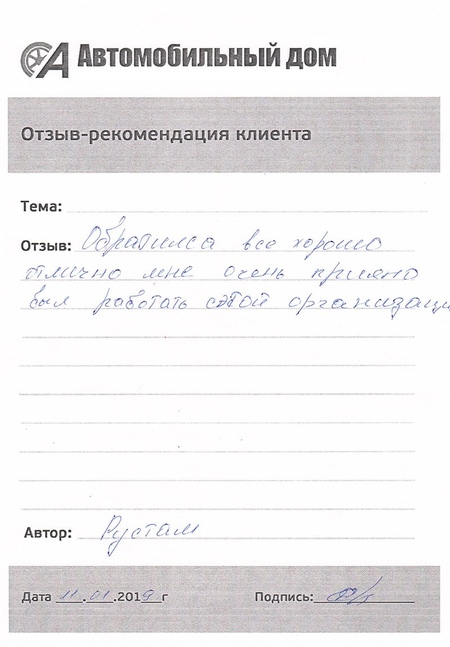 Автомобильный дом
Отзыв-рекомендация клиента
Тема:
Отзыв: Обратился все хорошо
отлично мне очень прияно
был работать сэтой организаци
Автор: Рустам
Дата 11.01.2019г Подпись: